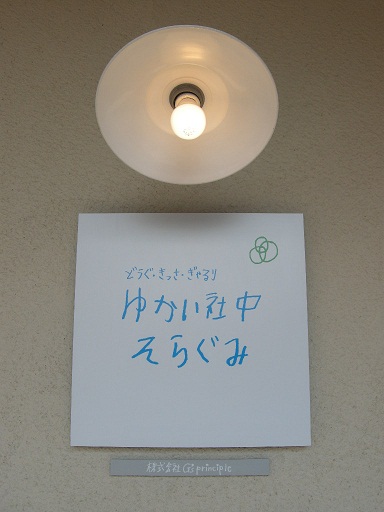 どうぐ・きっさ・ぎゃるり
ゆかい社中
そらぐみ
株式会社 G principle